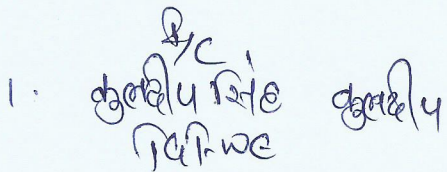 A/C
1. कुलदीप सिंह कुलदीप